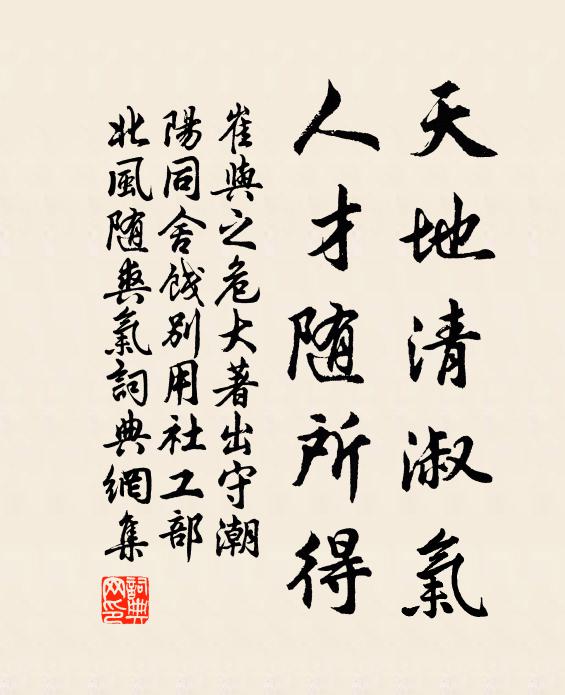 天地清淑氣
人才随所得
崔與之危大著出守潮
陽同舍餞別用社工部
北風随爽氣詞典網集
詞典
网印